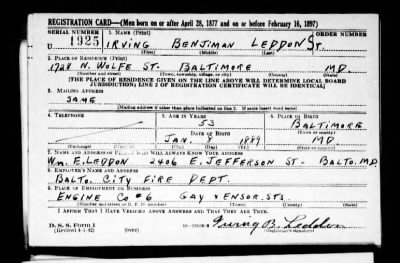 REGISTRATION CARD—(Men born on or after April 28, 1877 and on or before February 16, 1897)
SERIAL NUMBER 1. NAME (Print)
U 1925 IRVING BENJIMAN LEDDON SR.
(First) (Middle) (Last)
2. PLACE OF RESIDENCE (Print)
1728 N. WOLFE ST. BALTIMORE MD.
(Number and street) (Town, township, village, or city) (County) (State)
[THE PLACE OF RESIDENCE GIVEN ON THE LINE ABOVE WILL DETERMINE LOCAL BOARD
JURISDICTION; LINE 2 OF REGISTRATION CERTIFICATE WILL BE IDENTICAL]
3. MAILING ADDRESS
SAME
[Mailing address if other than place indicated on line 2. If same insert word same]
4. TELEPHONE 5. AGE IN YEARS 6. PLACE OF BIRTH
53 BALTIMORE
DATE OF BIRTH (Town or county)
JAN. 8 1889 MD.
(Exchange) (Number) (Mo.) (Day) (Yr.) (State or country)
7. NAME AND ADDRESS OF PERSON WHO WILL ALWAYS KNOW YOUR ADDRESS
WM. E. LEDDON 2406 E. JEFFERSON ST. BALTO. MD.
8. EMPLOYER'S NAME AND ADDRESS
BALTO. CITY FIRE DEPT.
9. PLACE OF EMPLOYMENT OR BUSINESS
ENGINE CO #6 GAY & ENSOR. STS.
(Number and street or R. F. D. number) (Town) (County) (State)
I AFFIRM THAT I HAVE VERIFIED ABOVE ANSWERS AND THAT THEY ARE TRUE.
D. S. S. Form 1
(Revised 4-1-42) (over) Irving B. Leddon
(Registrant's signature)